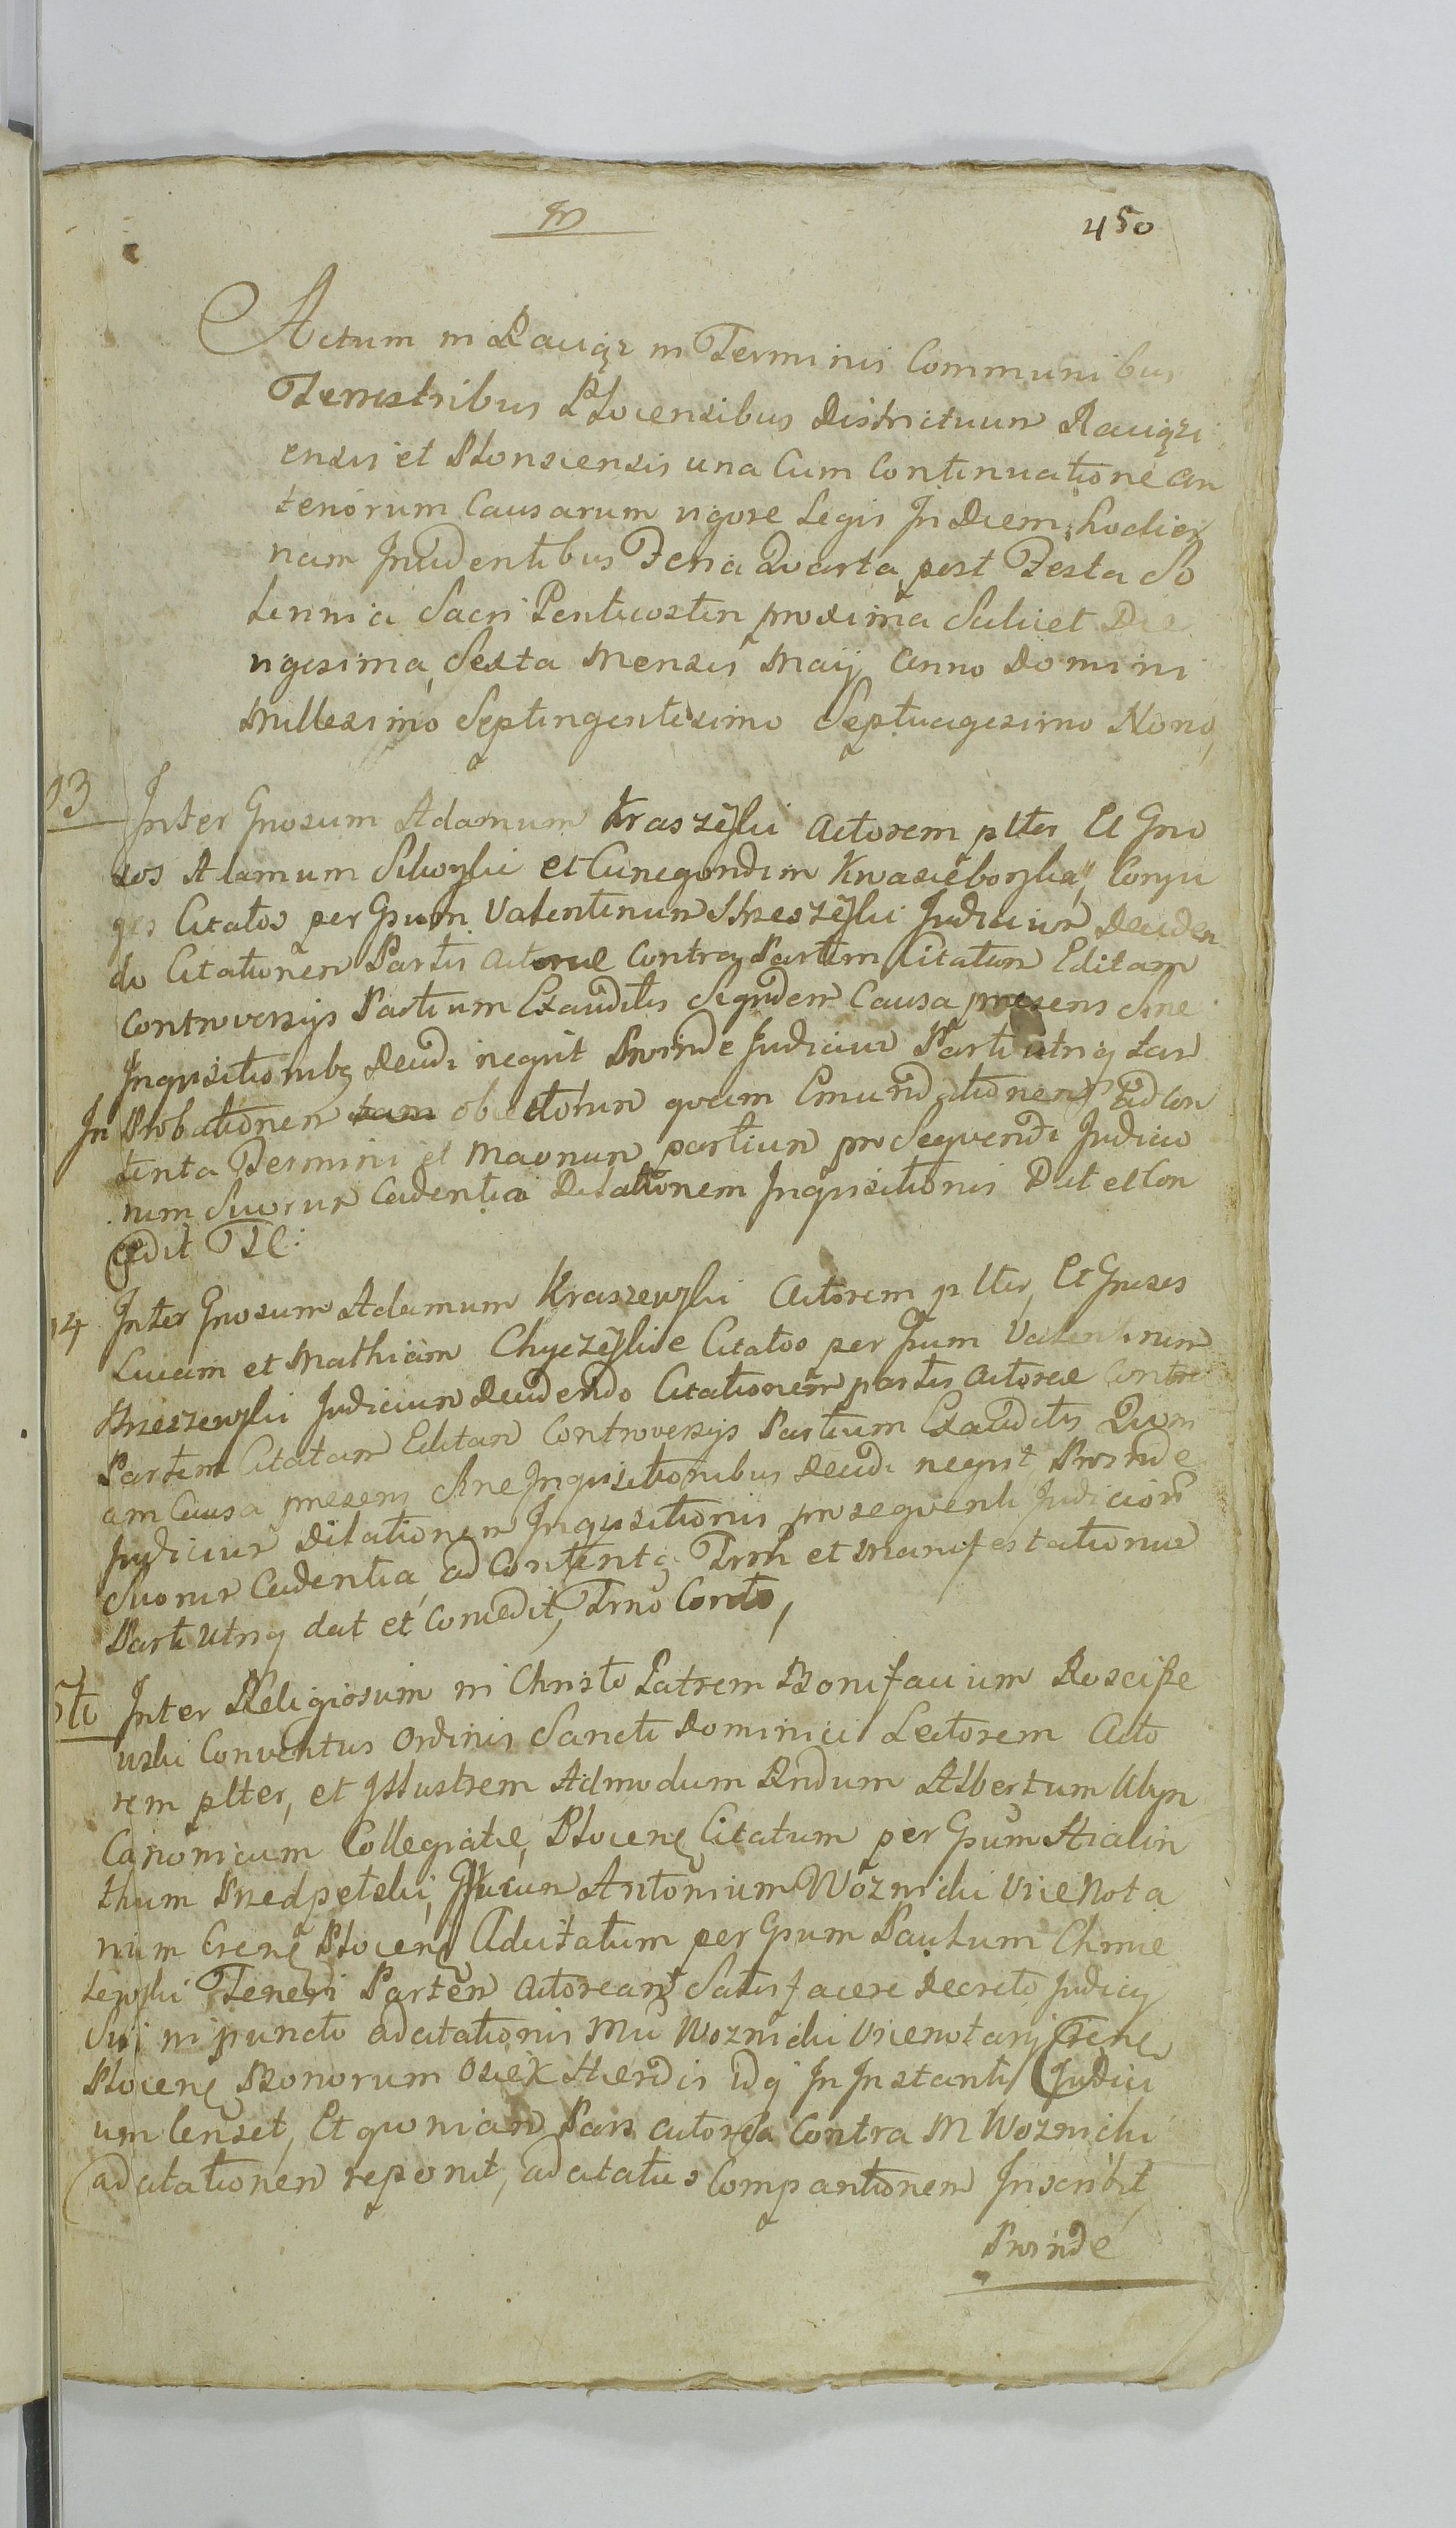 450
Actum in Raciąz in Terminis Communibus
Terrestribus Plocensibus Districtuum Raciązi
ensis et Plonscensis una Cum Continuatione an
teriorum Causarum vigore Legis In Diem hodier
nam Incidentibus Feria Quarta post Festa So
lennia Sacri Pentecosten proxima Scilicet Die
vigesima Sexta Mensis Maij Anno Domini
Millesimo Septingentesimo Septuagesimo Nono,
13
Inter Gnosum Adamum Actorem plter Et Gno
sos Adamum et Cunegondim Conju
ges Citatos per Gsum Valentinum Judicium Deciden
do Citationem Partis Actoreæ Contra Partem Citatam Editam
Controversijs Partium Exauditis Siquidem Causa presens Sine
Inqvisitionibq Decidi neqvit Proinde Judicium Parti utriq tam
In Probationem obiectorum qvam Emundationem ad Con
tenta Termini et Maonum partium pro Seqvendi Judicio
rum Suorum Cadentia Dilationem Inqvisitionis Dat et Con
cedit TC:
14 Inter Gnosum Adamum Kraszewski Actorem plter, Et Gnosos
Lucam et Mathiam Citatos per Gsum Valentinum
Judicium Decidendo Citationem partis Actoreæ Contra
Partem Citatam Editam Controversijs Partium Exauditis Quoni
am Causa presens Sine Inqvisitionibus Decidi neqvit Proinde
Judicium Dilationem Inqvisitionis pro seqventi Judiciorum
Suorum Cadentia ad Contenta Trni et Manifestationum
Parti Utriq dat et Concedit, Trno Conto,
5to Inter Religiosum in Christo Patrem Bonifacium Rosciſze
wski Conventus Ordinis Sancti Dominici Lectorem Acto
rem plter, et Illustrem Admodum Rndum Albertum
Canonicum Collegiatæ Plocens Citatum per Gsum Hiacin
thum Przedpełski, Antonium Woznicki Vice Nota
rium Plocens Adcitatum per Gsum Paulum Chmie
lewski Teneri Partem Actoream Satisfacere Decreto Judicij
Sui in puncto adcitationis Mci Woznicki Vicenotarij
Plocens Bonorum Osiek Hærdis Idq In Instanti Judici
um Censet, Et quoniam Pars actorea Contra M Woznicki
adcitationem reponit, adcitatus Comparitionem Inscribit
Proinde